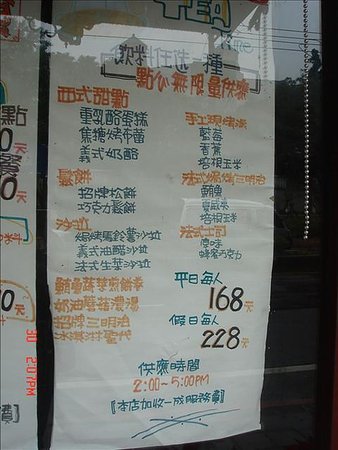 TEA
飲料任选一種
點心無限量供應
西式甜點
重乳酪蛋糕
焦糖烤布蕾
義式奶酪
鬆餅
招牌松餅
巧克力鬆餅
沙拉
焗烤馬鈴薯沙拉
義式油醋沙拉
法式生菜沙拉
鮪魚蔬菜煎餅卷
奶油蘑菇濃湯
招牌三明治
冰淇淋聖代
藍莓
香蕉
培根玉米
法式焗烤三明治
鮪魚
夏威夷
培根玉米
法式土司
原味
蜂蜜巧克力
平日每人
168元
假日每人
228元
供應時間
2:00~5:00PM
【本店加收一成服務費】
點
0
餐
0元
費】
30 2:07PM